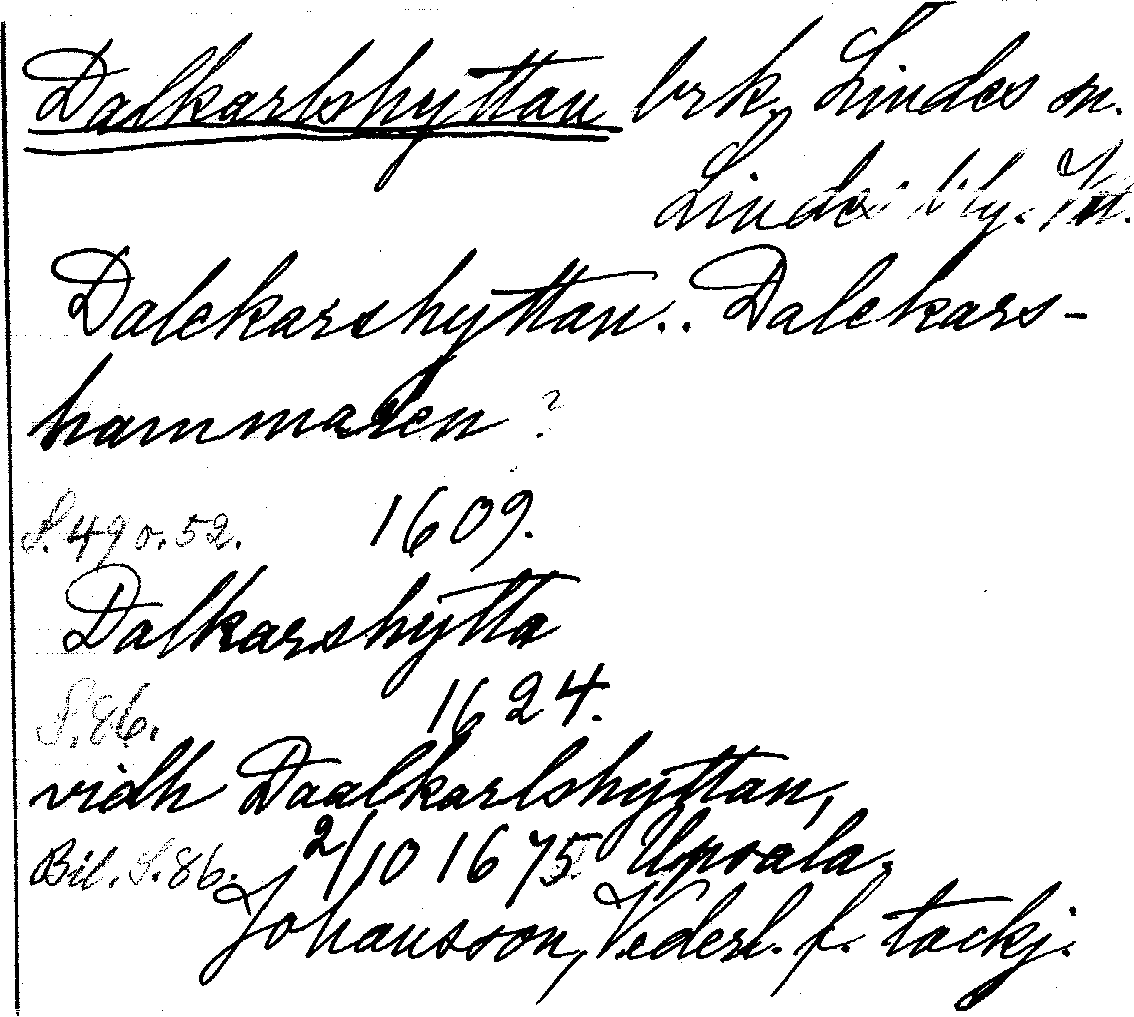 Dalkarlshyttan brk, Lindes sn.
Lindes blg. Vm.
Dalckarshyttan.. Dalckars-
hammaren ?
S. 49 o. 52. 1609.
Dalkarshytta
S. 86. 1624.
vidh Daalkarlshyttan,
Bil. S. 86. 2/10 1675 Upsala.
Johansson, Vederl. f. tackj.